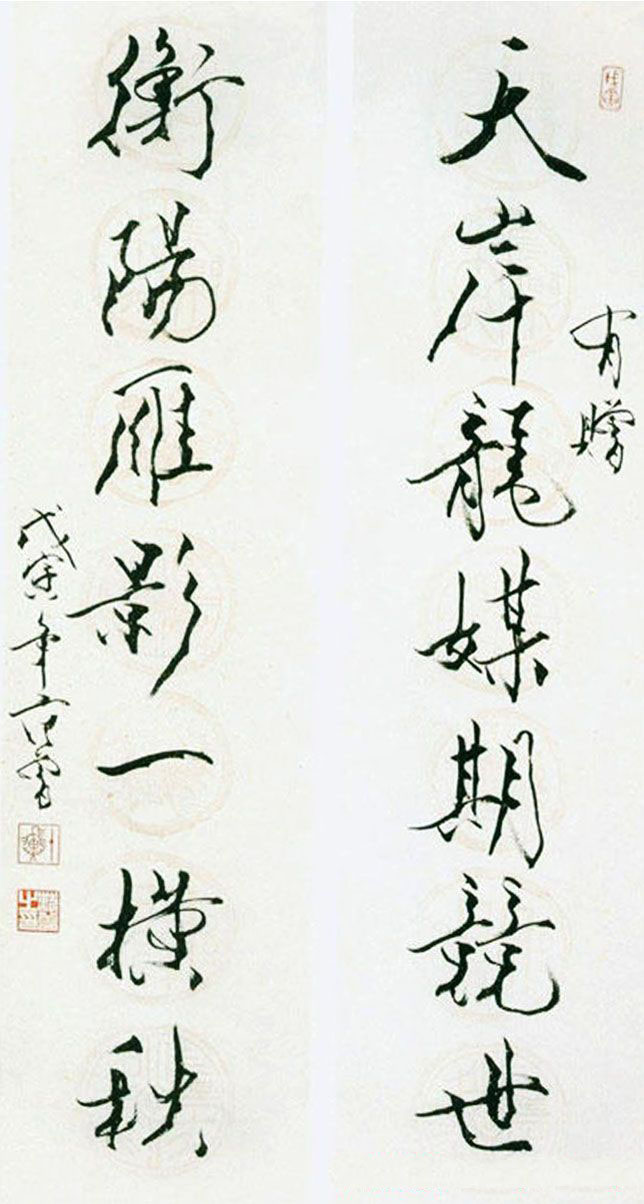 天岸龍媒期競世
有贈
衡陽雁影一橫秋
戊寅年范曾